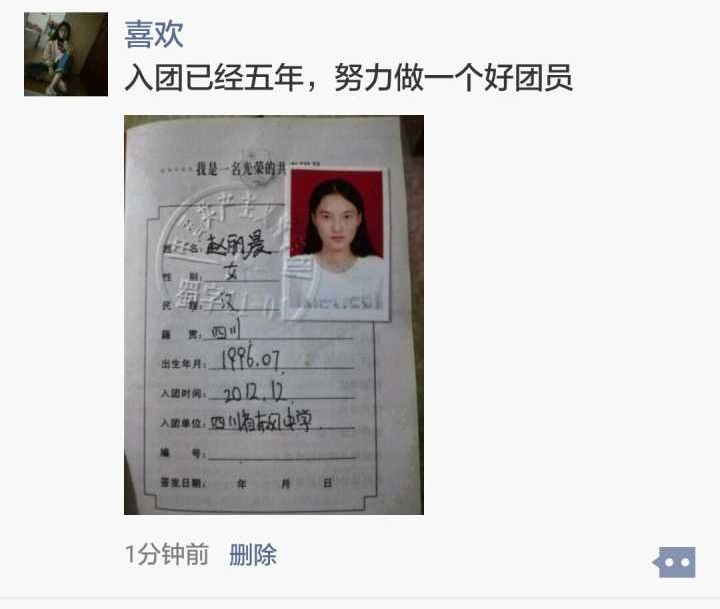 喜欢
入团已经五年，努力做一个好团员
我是一名光荣的共
姓 名：赵丽
性 别：女
民 族：汉
籍 贯：四川
出生年月：1996.07.
入团时间：2012.12.
入团单位：四川省东风中学.
编 号：
签发日期： 年 月 日
1分钟前 删除